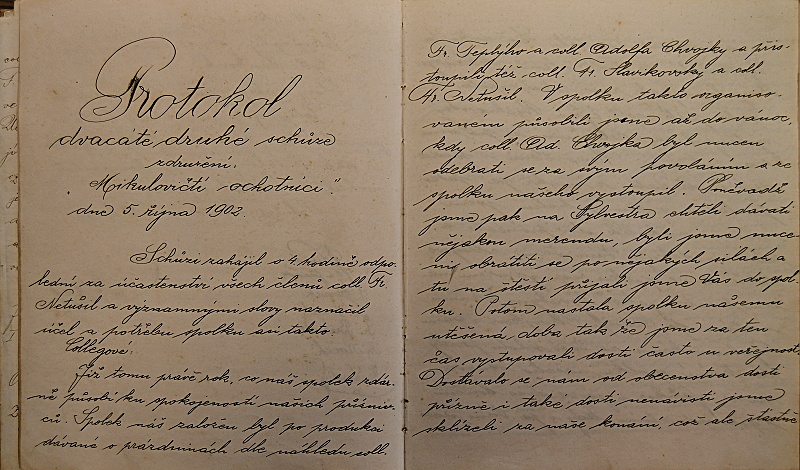 Protokol
dvacáté druhé schůze
združení.
"Mikulovičtí ochotníci".
dne 5. října 1902.
Schůzi zahájil o 4. hodině odpo-
lední za účastenství všech členů coll. Fr.
Netušil a významnými slovy naznačil
účel a potřebu spolku asi takto:
Collegové!
Již tomu právě rok, co náš spolek zdár-
ně působí ku spokojenosti našich příkniv-
ců. Spolek náš založen byl po produkci
dávané o prázdninách dle náhledu coll.
Fr. Teplýho a coll. Adolfa Chvojky a přis-
toupili též coll. Fr. Slavíkovský a coll.
Fr. Netušil. V spolku takto organiso-
vaném působili jsme až do vánoc,
kdy coll. Ad. Chvojka byl nucen
odebrati se za svým povoláním a ze
spolku našeho vystoupil. Poněvadž
jsme pak na Sylvestra chtěli dávati
nějakou merendu, byli jsme nuce-
ni obrátiti se po nějakých silách a
tu na štěstí přijali jsme Vás do spol-
ku. Potom nastala spolku našemu
utěšená doba tak že jsme za ten
čas vystupovali dosti často u veřejnosti.
Dostávalo se nám od obecenstva dosti
přízně i také dosti nenávisti jsme
sklízeli za naše konání, což ale šťastně